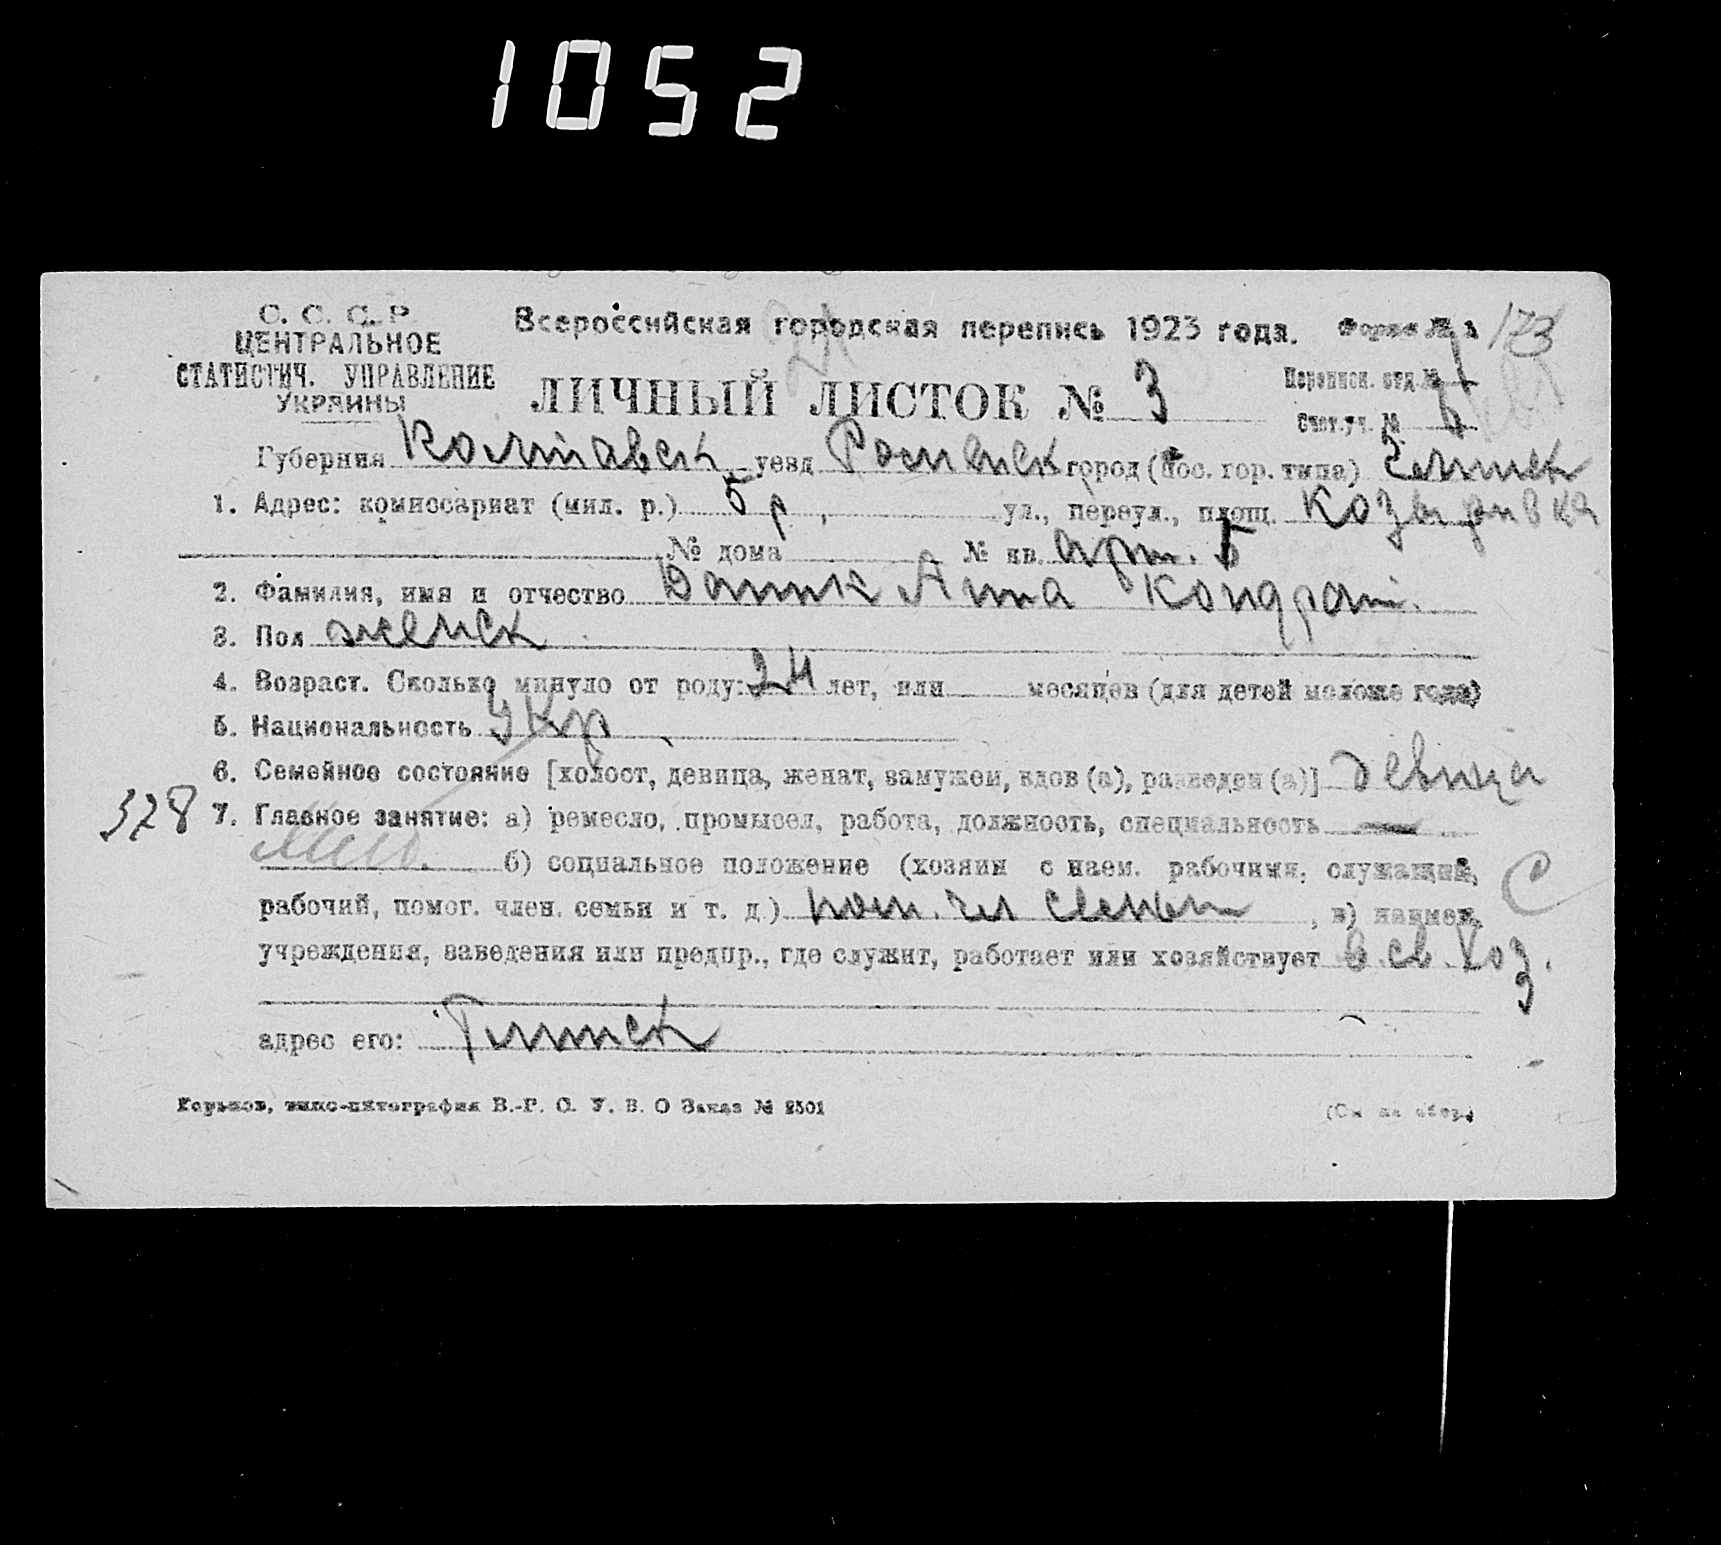 1052
С. С. С. Р
Всероссийская городская перепись 1923 года. Форма № 1 173
ЦЕНТРАЛЬНОЕ
СТАТИСТИЧ. УПРАВЛЕНИЕ
УКРАИНЫ
ЛИЧНЫЙ ЛИСТОК № 3
Переписн. отд. №
Счет. уч. №
Губерния Полтавск уезд Роменск город (пос. гор. типа) Глинск
1. Адрес: комиссариат (мил. р.) 5 р , ул., переул., площ.
№ дома № кв. 5
2. Фамилия, имя и отчество Анна Кондрат.
3. Пол женск
4. Возраст. Сколько минуло от роду: 24 лет, или месяцев (для детей моложе года)
5. Национальность Укр
6. Семейное состояние [холост, девица, женат, замужем, вдов (а), разведен (а)] девица
328 7. Главное занятие: а) ремесло, промысел, работа, должность, специальность
б) социальное положение (хозяин с наем. рабочими, служащий, С
рабочий, помог. член. семьи и т. д.) пом. чл семьи , в) наимен.
учреждения, заведения или предпр., где служит, работает или хозяйствует в св. хоз.
адрес его: Глинск
Харьков, типо-литография В.-Г. С. У. В. О Заказ № 2501
(См на обор.)